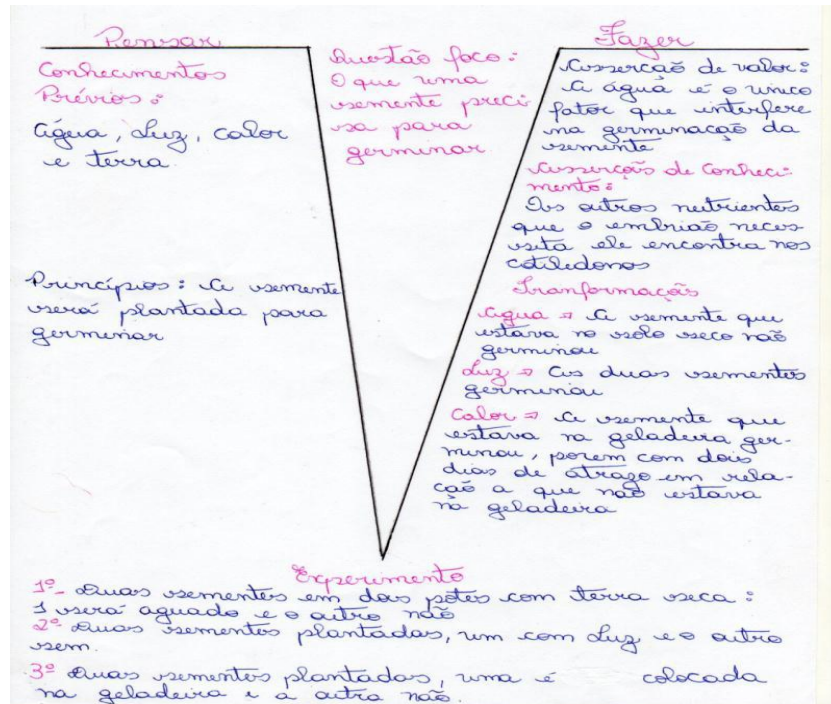 Pensar
Conhecimentos
Prévios:
água, luz, calor
e terra.
Princípios: A semente
será plantada para
germinar
Questão foco:
O que uma
semente preci
sa para
germinar
Fazer
Asserção de valor:
A água é o unico
fator que interfere
na germinação da
semente
Asserção de Conheci-
mento:
Os outros nutrientes
que o embrião neces
sita ele encontra nos
cotiledonos
Tranformação
água → A semente que
estava no solo seco não
germinou
luz → As duas sementes
germinou
Calor → A semente que
estava na geladeira ger-
minou, porem com dois
dias de atrazo em rela-
ção a que não estava
na geladeira
Experimento
1º- Duas sementes em dois potes com terra seca:
1 será aguado e o outro não
2º Duas sementes plantadas, um com luz e o outro
sem.
3º Duas sementes plantadas, uma é colocada
na geladeira e a outra não.